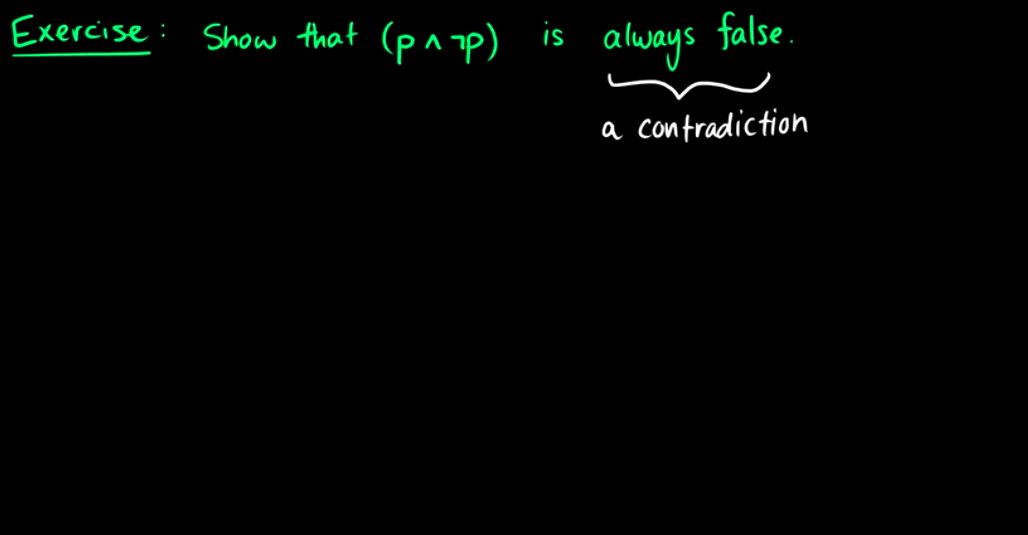 Exercise: Show that (p ∧ ¬p) is always false.
a contradiction